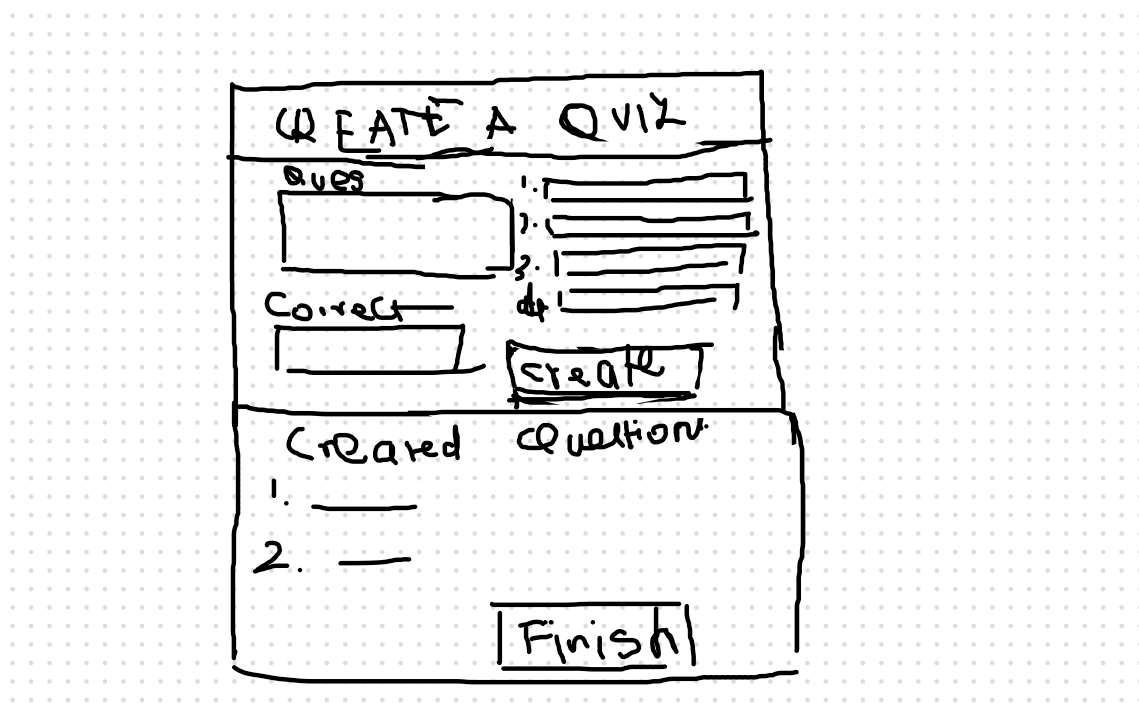 CREATE A QUIZ
Ques
1.
2.
3.
4.
Correct
Create
Created Question
1.
2.
Finish